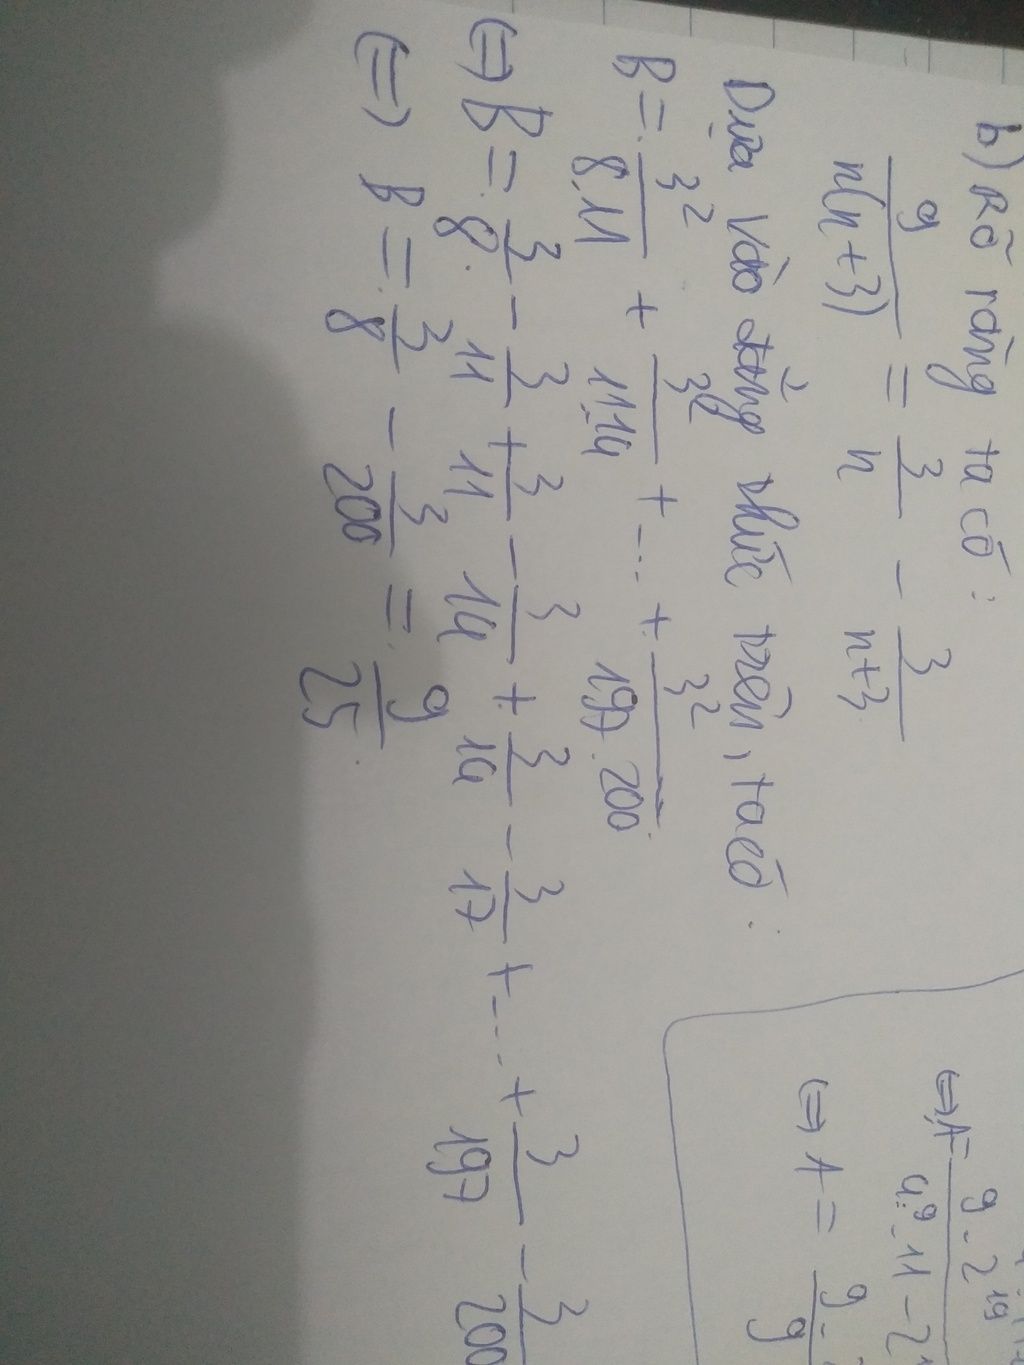 b) Rõ ràng ta có:
9/n(n+3) = 3/n - 3/n+3
Dựa vào đẳng thức trên, ta có:
B = 3²/8.11 + 3²/11.14 + ... + 3²/197.200
(=) B = 3/8 - 3/11 + 3/11 - 3/14 + 3/14 - 3/17 + ... + 3/197 - 3/200
(=) B = 3/8 - 3/200 = 9/25
(=) A =
(=) A =